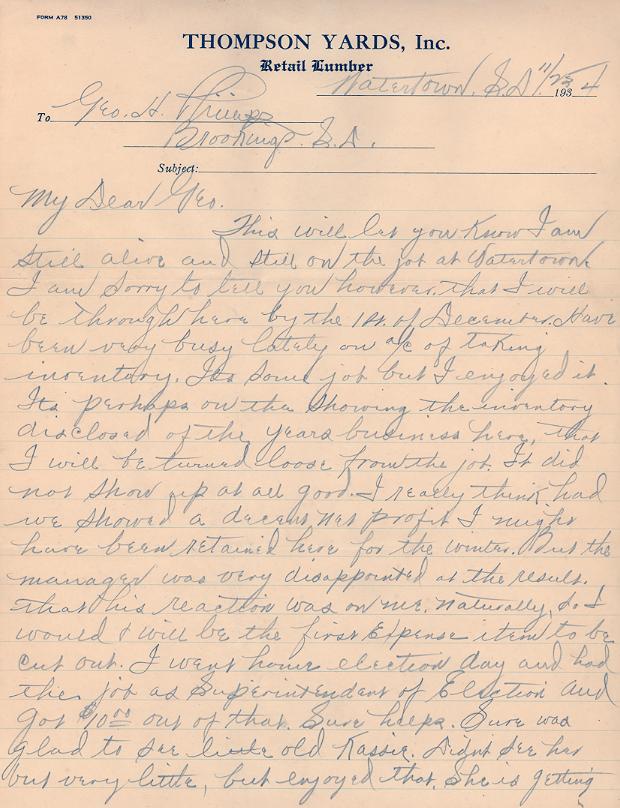 FORM A78 51350
THOMPSON YARDS, Inc.
Retail Lumber
Watertown, S.D. 11/23 1934
To Geo. H. Phipps
Brookings. S.D.
Subject:
My Dear Geo.
This will let you know I am
still alive and still on the job at Watertown
I am sorry to tell you however, that I will
be through here by the 1st. of December. Have
been very busy lately on a/c of taking
inventory. Its some job but I enjoyed it.
Its perhaps on the showing the inventory
disclosed of the years business here, that
I will be turned loose from the job. It did
not show up at all good. I really think had
we showed a decent net profit I might
have been retained here for the winter. But the
manager was very disappointed at the result.
that his reaction was on me. Naturally, so I
would & will be the first Expense item to be
cut out. I went home election day and had
the job as Superintendent of Election and
got $10.00 out of that. Sure helps. Sure was
glad to see little old Kassie. Didn't see her
but very little, but enjoyed that. She is getting